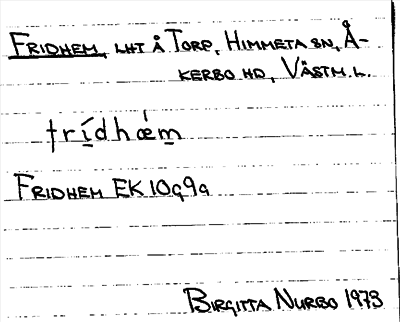 FRIDHEM, LHT Å TORP, HIMMETA SN, Å-
KERBO HD, VÄSTM. L.
frídhǽm
FRIDHEM EK 10g9a
BIRGITTA NURBO 1973